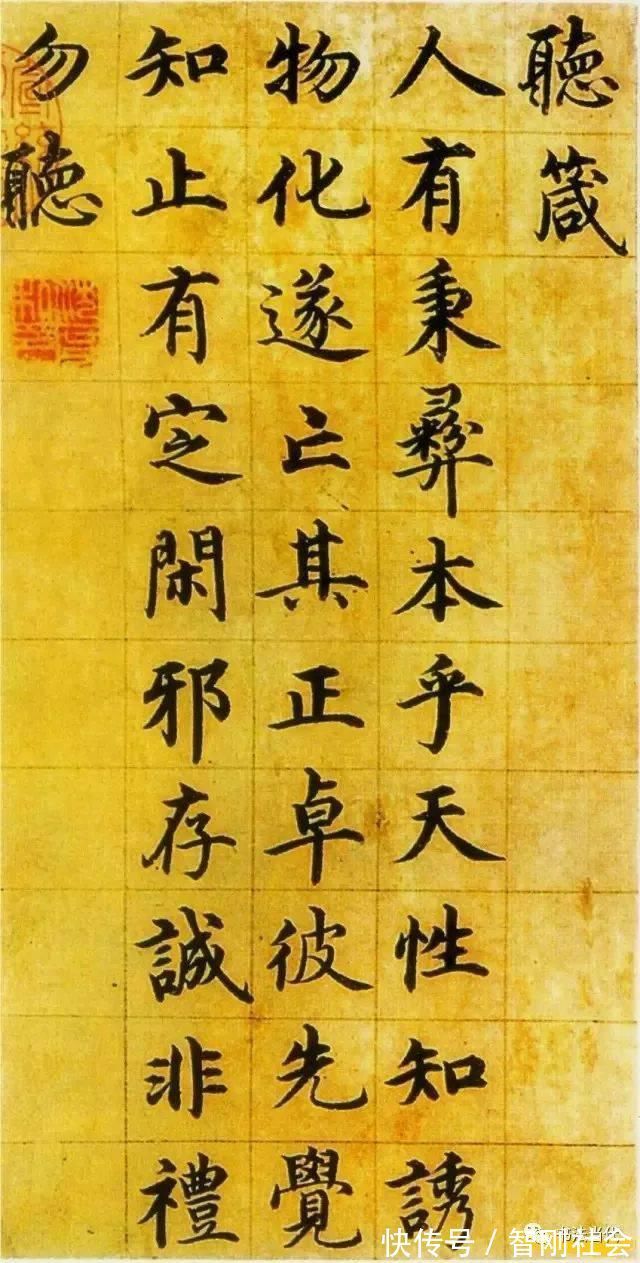 聽箴
人有秉彝本乎天性知誘
物化遂亡其正卓彼先覺
知止有定閑邪存誠非禮
勿聽
快传号／智刚社会